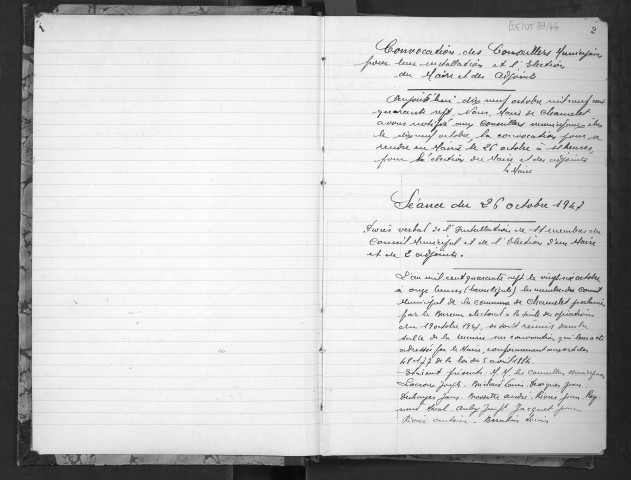 1
EDEPOT 39/44
2
Convocation des Conseillers Municipaux
pour leur installation et l'Election
du Maire et des Adjoints
Aujourd'hui dix neuf octobre mil neuf cent
quarante sept, Nous, Maire de Chamelet
avons notifié aux Conseillers municipaux élus
le dix neuf octobre, la convocation pour se
rendre en Mairie le 26 octobre à 11 heures,
pour l'élection du Maire et des adjoints
le Maire
Séance du 26 octobre 1947
Procès verbal de l'Installation de 11 membres du
Conseil Municipal et de l'Election d'un Maire
et de 2 adjoints.
L'an mil cent quarante sept le vingt six octobre
à onze heures (heure légale) les membres du Conseil
Municipal de la Commune de Chamelet proclamés
par le Bureau électoral à la suite des opérations
du 19 octobre 1947, se sont réunis dans la
salle de la Mairie sur convocation qui leur a été
adressée par le Maire, conformément aux articles
48 et 77 de la loi du 5 avril 1884.
Etaient présents : M.M. les conseillers municipaux
Lacroix Joseph. Louis. Jean.
Desbonnes Jean. Brossette André.
Joseph Jacquet
antoine. Louis